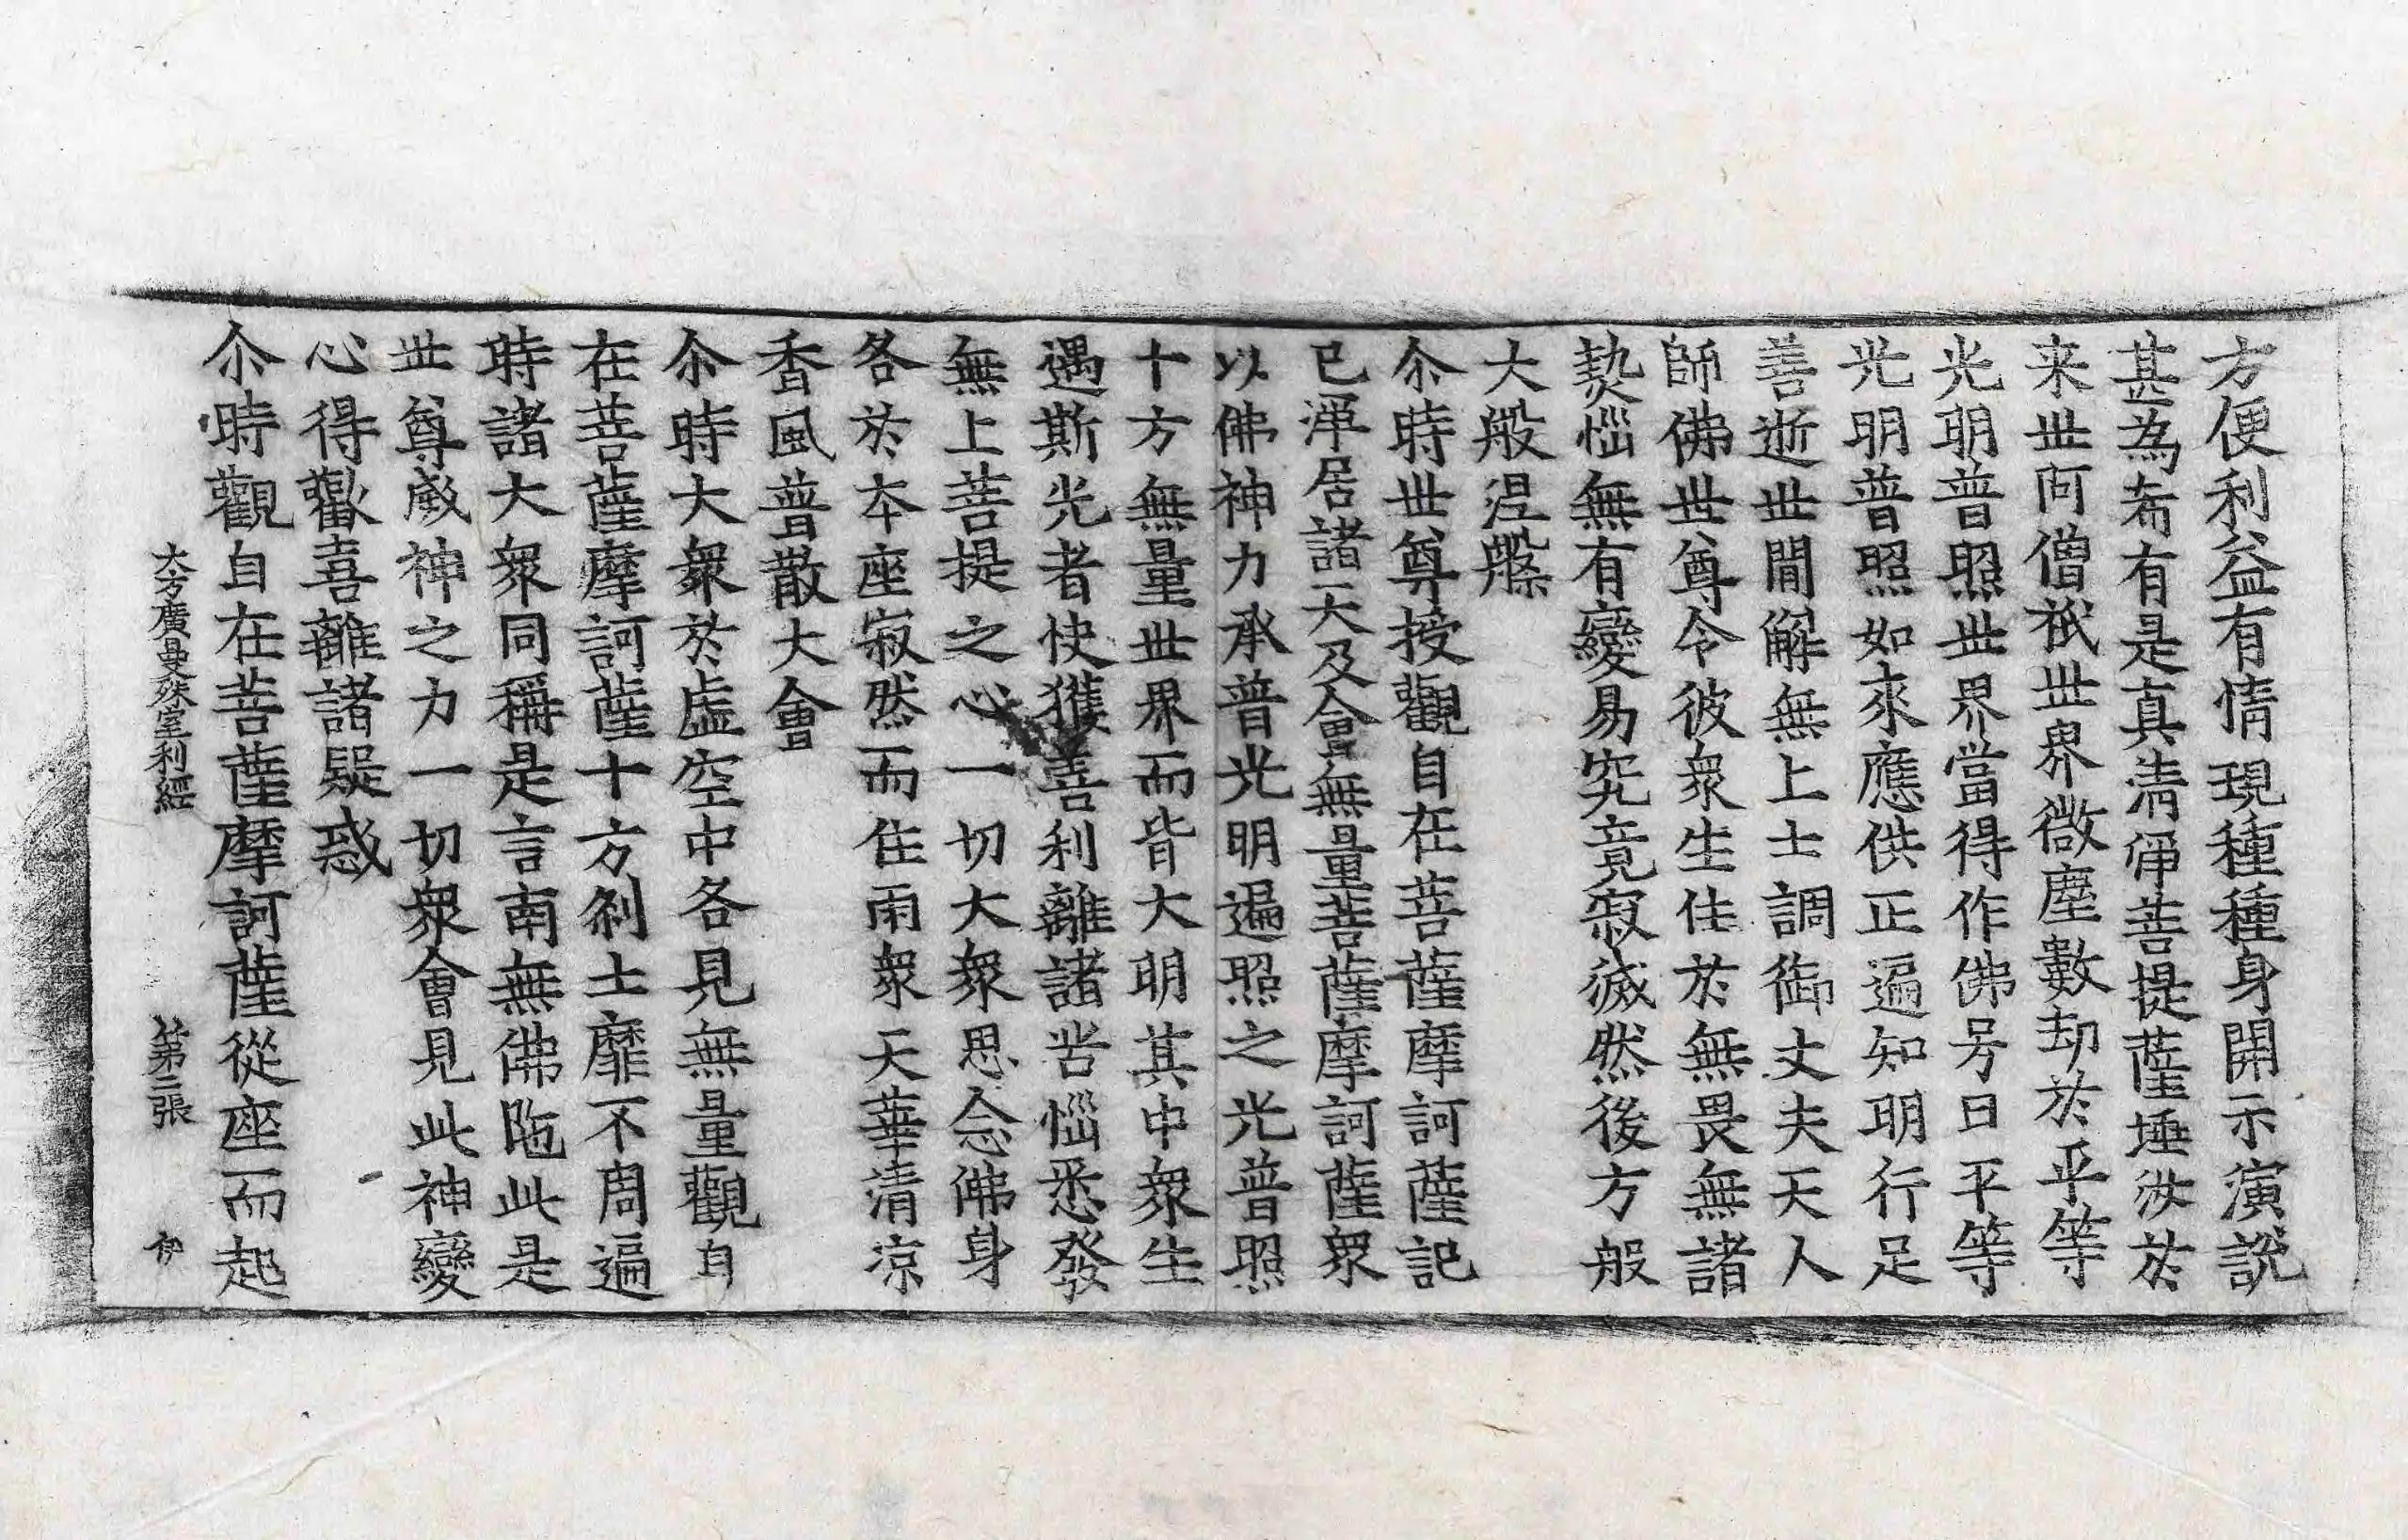 方便利益有情現種種身開示演說
甚為希有是真清淨菩提薩埵汝於
来世阿僧祇世界微塵數劫於平等
光明普照世界當得作佛号曰平等
光明普照如來應供正遍知明行足
善逝世間解無上士調御丈夫天人
師佛世尊令彼衆生住於無畏無諸
熱惱無有變易究竟寂滅然後方般
大般涅槃
尒時世尊授觀自在菩薩摩訶薩記
已淨居諸天及會無量菩薩摩訶薩衆
以佛神力承普光明遍照之光普照
十方無量世界而皆大明其中衆生
遇斯光者快獲善利離諸苦惱悉發
無上菩提之心一切大衆思念佛身
各於本座寂然而住雨衆天華清凉
香風普散大會
尒時大衆於虛空中各見無量觀自
在菩薩摩訶薩十方剎土靡不周遍
時諸大衆同稱是言南無佛陁此是
世尊威神之力一切衆會見此神變
心得歡喜離諸疑惑
尒時觀自在菩薩摩訶薩從座而起
大方廣曼殊室利經 第二張 伊